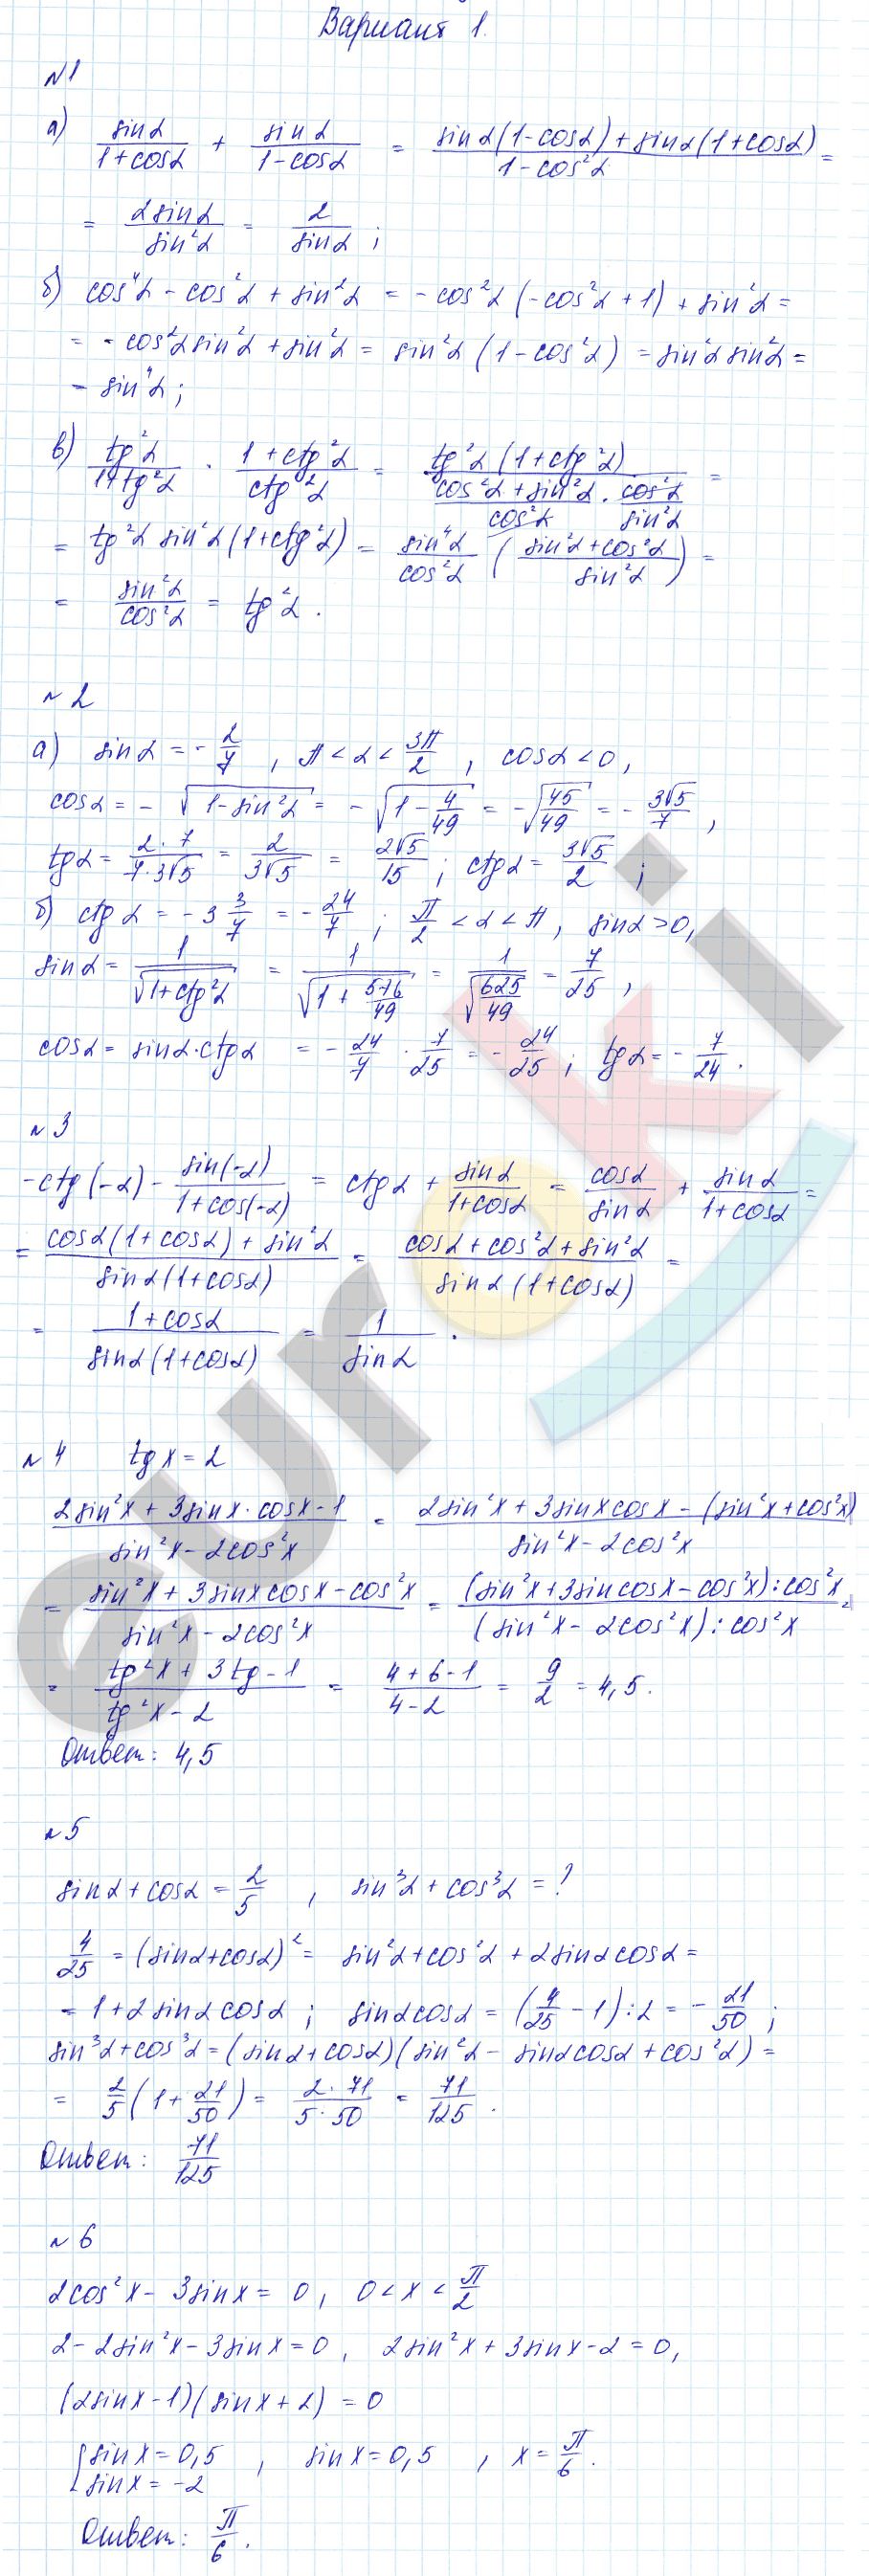 Вариант 1.
№1
а) sinα/(1+cosα) + sinα/(1-cosα) = (sinα(1-cosα)+sinα(1+cosα))/(1-cos²α) =
= 2sinα/sin²α = 2/sinα ;
б) cos⁴α - cos²α + sin²α = -cos²α(-cos²α+1) + sin²α =
= -cos²α sin²α + sin²α = sin²α (1-cos²α) = sin²α sin²α =
= sin⁴α ;
в) tg²α/(1+tg²α) · (1+ctg²α)/ctg²α = tg²α(1+ctg²α)/((cos²α+sin²α)/cos²α · cos²α/sin²α) =
= tg²α sin²α (1+ctg²α) = sin⁴α/cos²α ((sin²α+cos²α)/sin²α) =
= sin²α/cos²α = tg²α .
№2
а) sinα = -2/7 , π < α < 3π/2 , cosα < 0 ,
cosα = -√(1-sin²α) = -√(1-4/49) = -√(45/49) = -3√5/7 ,
tgα = 2·7/(7·3√5) = 2/(3√5) = 2√5/15 ; ctgα = 3√5/2 ;
б) ctgα = -3 3/7 = -24/7 ; π/2 < α < π , sinα > 0,
sinα = 1/√(1+ctg²α) = 1/√(1+576/49) = 1/√(625/49) = 7/25 ,
cosα = sinα·ctgα = -24/7 · 7/25 = -24/25 ; tgα = -7/24 .
№3
-ctg(-α) - sin(-α)/(1+cos(-α)) = ctgα + sinα/(1+cosα) = cosα/sinα + sinα/(1+cosα) =
= (cosα(1+cosα)+sin²α)/(sinα(1+cosα)) = (cosα+cos²α+sin²α)/(sinα(1+cosα)) =
= (1+cosα)/(sinα(1+cosα)) = 1/sinα .
№4 tgx = 2
(2sin²x + 3sinx·cosx-1)/(sin²x-2cos²x) = (2sin²x + 3sinxcosx - (sin²x+cos²x))/(sin²x-2cos²x)
= (sin²x + 3sinxcosx - cos²x)/(sin²x-2cos²x) = ((sin²x+3sincosx-cos²x):cos²x)/((sin²x-2cos²x):cos²x) =
= (tg²x + 3tg-1)/(tg²x-2) = (4+6-1)/(4-2) = 9/2 = 4,5.
Ответ: 4,5
№5
sinα+cosα = 2/5 , sin³α + cos³α = ?
4/25 = (sinα+cosα)² = sin²α+cos²α + 2sinαcosα =
= 1+2sinαcosα ; sinαcosα = (4/25 - 1):2 = -21/50 ;
sin³α+cos³α = (sinα+cosα)(sin²α - sinαcosα + cos²α) =
= 2/5(1+21/50) = 2·71/(5·50) = 71/125 .
Ответ: 71/125
№6
2cos²x - 3sinx = 0 , 0 < x < π/2
2-2sin²x-3sinx = 0 , 2sin²x+3sinx-2 = 0,
(2sinx-1)(sinx+2) = 0
[sinx = 0,5 , sinx = 0,5 , x = π/6 .
sinx = -2
Ответ: π/6 .
euroki